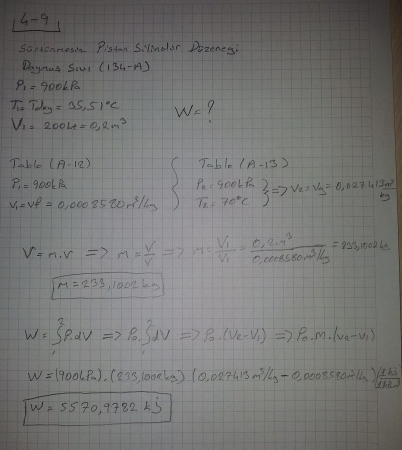 4-9
Sürtünmesiz Piston Silindir Düzeneği
Doymuş Sıvı (134-A)
P₁ = 900kPa
T₁ = Tdoy = 35,51°C
V₁ = 200Lt = 0,2m³
W = ?
Tablo (A-12)
P₁ = 900kPa
v₁ = vf = 0,0008580m³/kg
Tablo (A-13)
P₂ = 900kPa
T₂ = 70°C
=> v₂ = vg = 0,027413 m³/kg
V = m.v => m = V/v => m = V₁/v₁ = 0,2m³ / 0,0008580m³/kg = 233,1002kg
m = 233,1002 kg
W = ∫₁² P.dV => P₀.∫₁² dV => P₀.(V₂-V₁) => P₀.m.(v₂-v₁)
W = (900kPa).(233,1002kg).(0,027413m³/kg - 0,0008580m³/kg)
W = 5570,9782 kJ